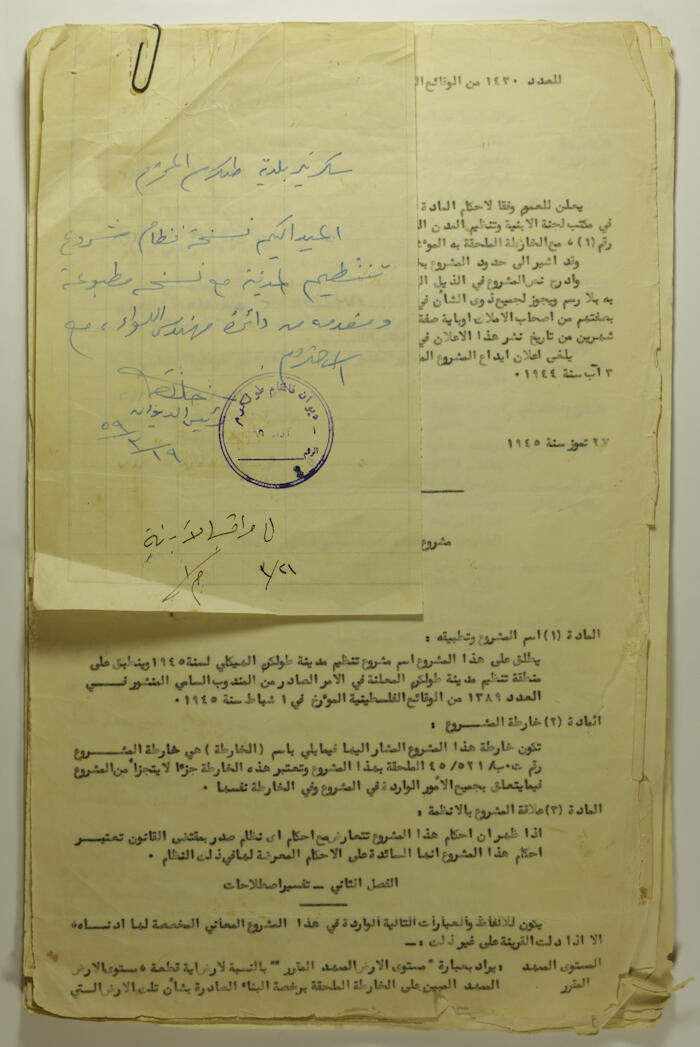 سكرتير بلدية طولكرم المحترم
اعيد اليكم نسخة نظام مشروع
تنظيم المدينة مع نسخة مطبوعة
ومقدمه من دائرة مهندس اللواء، مع
الاحترام
رئيس الديوان
٥٩/٣/١٩
ديوان قائمقام طولكرم
الرقم
٣/٢١
للعدد ١٤٣٠ من الوقائع
يعلن للعموم وفقا لاحكام المادة
في مكتب لجنة الابنية وتنظيم المدن
رقم (١) ٥ مع الخارطة الملحقة به
وقد اشير الى حدود المشروع
وادرج نص المشروع في الذيل
به بلا رسم ويجوز لجميع ذوى الشأن في
بصفتهم من اصحاب الاملاك اوباية صفة
شهرين من تاريخ نشر هذا الاعلان في
يلغى اعلان ايداع المشروع
٣ آب سنة ١٩٤٤ ٠
٢٧ تموز سنة ١٩٤٥
مشروع
المادة (١) اسم المشروع وتطبيقه :
يطلق على هذا المشروع اسم مشروع تنظيم مدينة طولكرم الهيكلي لسنة ١٩٤٥ وينطبق على
منطقة تنظيم مدينة طولكرم المعلنة في الامر الصادر من المندوب السامي المنشور فـــي
العدد ١٣٨٩ من الوقائع الفلسطينية المؤرخ في ١ شباط سنة ١٩٤٥ ٠
المادة (٢) خارطة المشـــروع :
تكون خارطة هذا المشروع المشار اليها فيمايلي باسم (الخارطة) هي خارطة المشـــروع
رقم ت٠ب/٤٥/٥٢١/٨ الملحقة بهذا المشروع وتعتبر هذه الخارطة جزءًا لايتجزأ من المشروع
فيمايتعلق بجميع الأمور الواردة في المشروع وفي الخارطة نفسها ٠
المادة (٣) علاقة المشروع بالانظمة :
اذا ظهر ان احكام هذا المشروع تتعارض مع احكام اى نظام صدر بمقتضى القانون تعتبــر
احكام هذا المشروع انها السائدة على الاحكام المعرضة لهافي ذلك النظام ٠
الفصل الثاني ــ تفسير اصطلاحات
يكون للالفاظ والعبارات التالية الواردة في هذا المشروع المعاني المخصصة لها ادنــاه
الا اذا دلت القرينة على غير ذلك : ــ
المستوى الممهد : يراد بعبارة " مستوى الارض الممهد المقرر " بالنسبة لارض اية قطعة مستوى الارض
المقرر الممهد المبين على الخارطة الملحقة برخصة البناء الصادرة بشأن تلك الارض الــتي